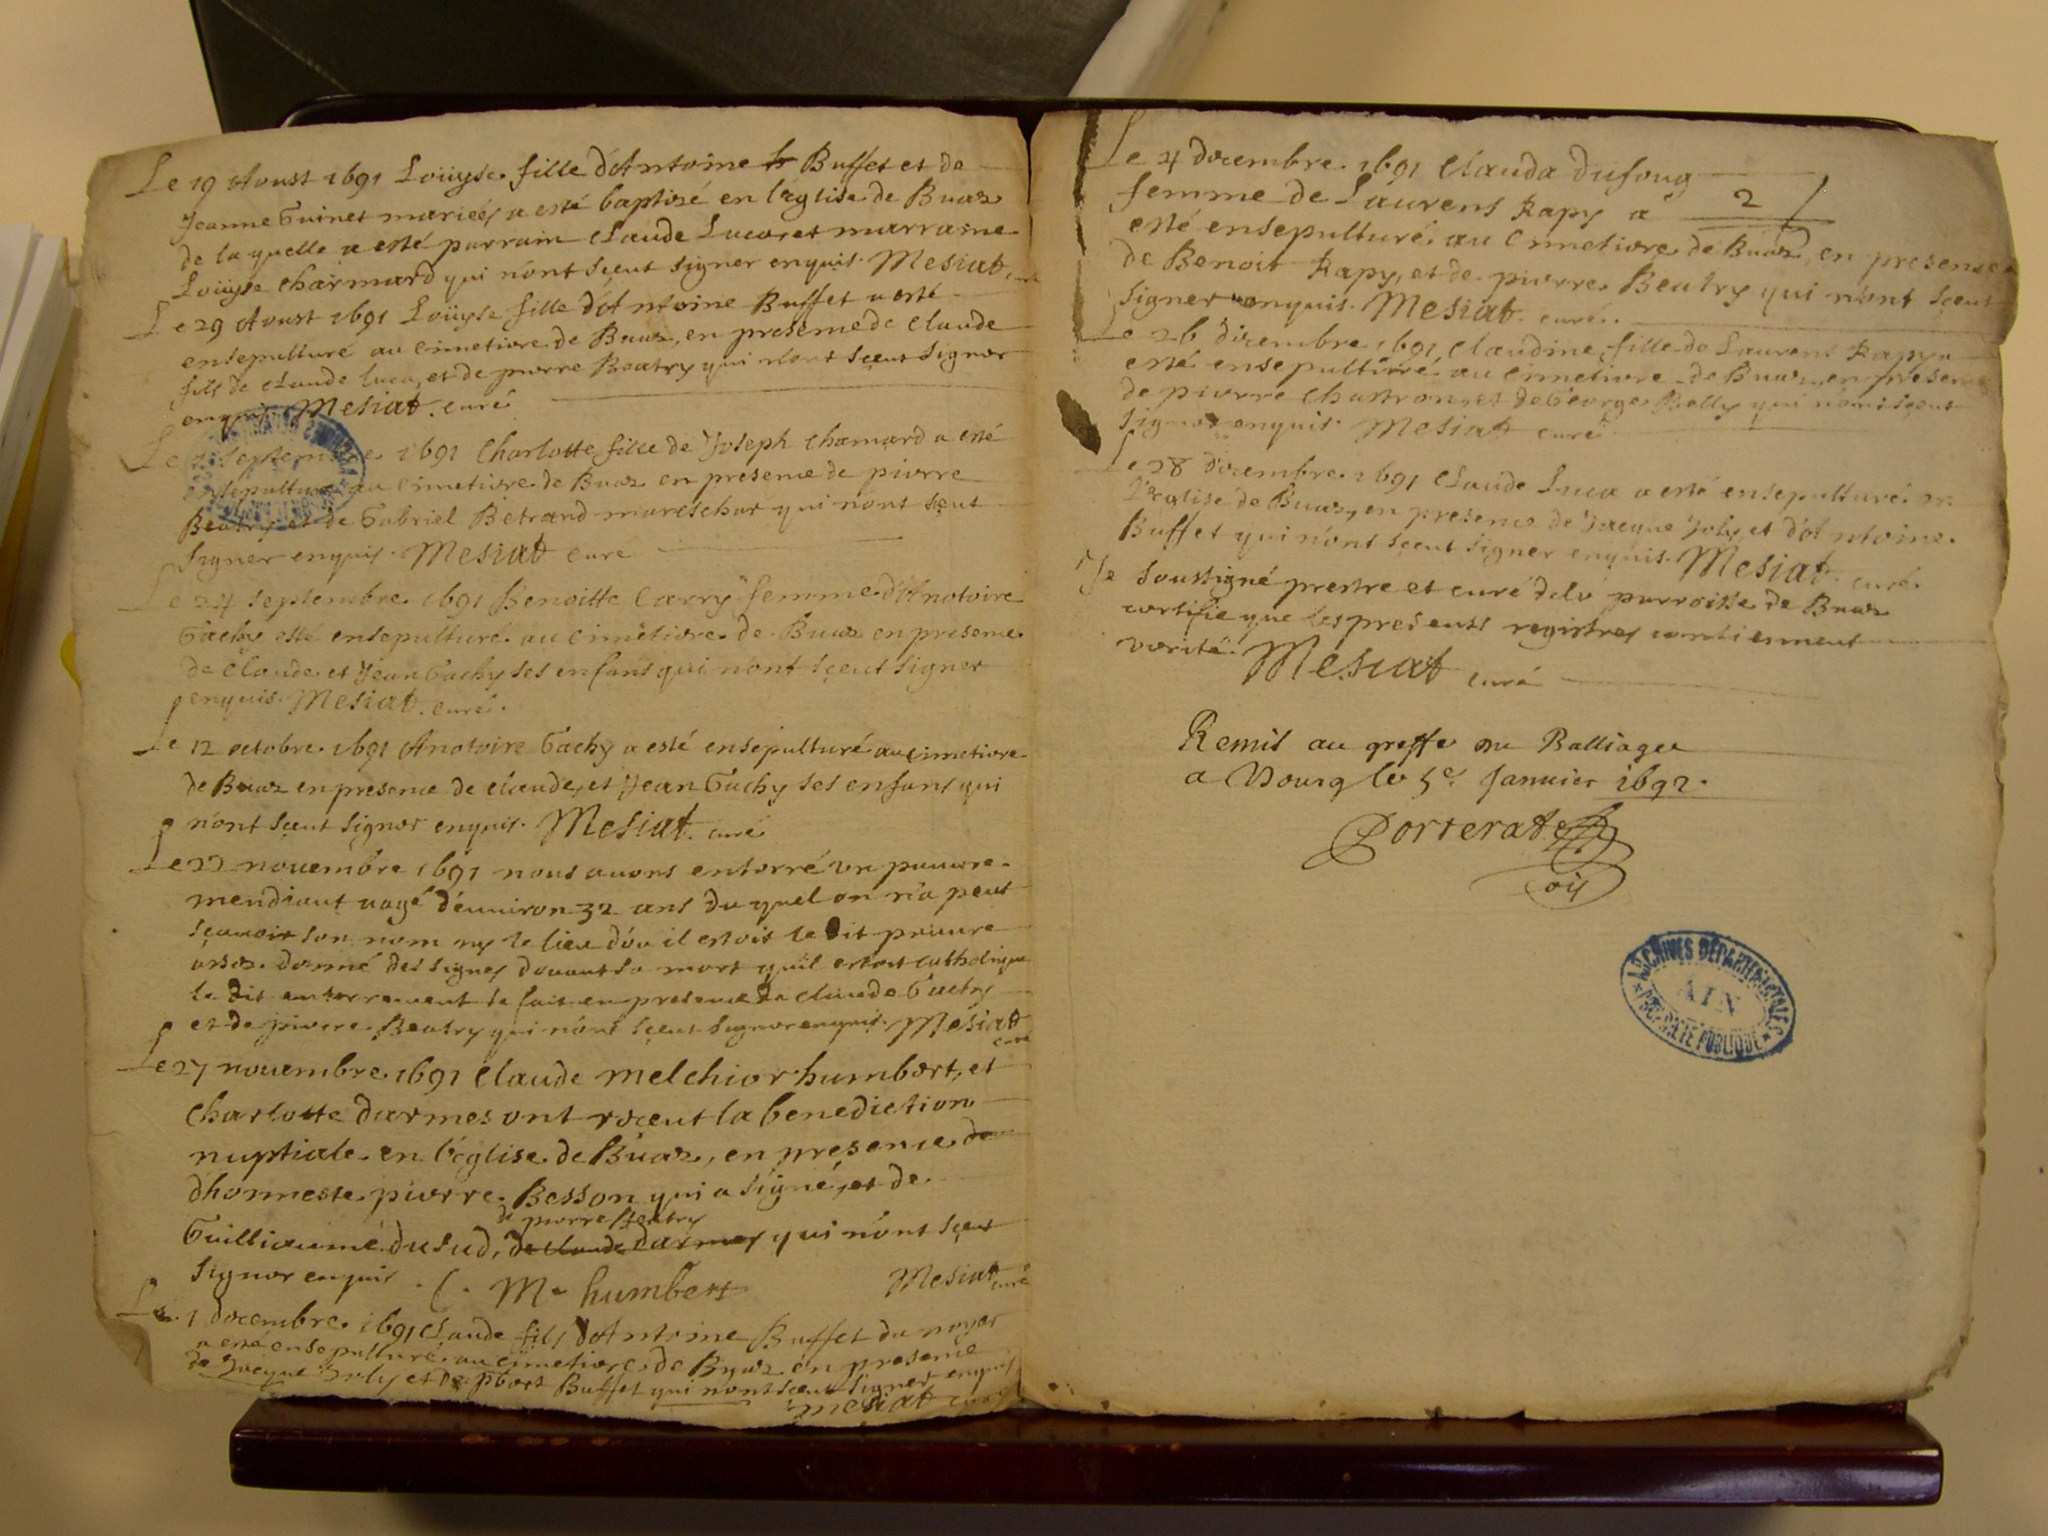 Le 19 Aoust 1691 Loüyse fille d'Antoine Buffet et de
Jeanne Guinet mariéés a esté baptisé en l'eglise de Buaz
de la quelle a esté parrain Claude Luca et marraine
Loüyse Charmard qui n'ont sçeut signer enquis. Mesiat curé
Le 29 Aoust 1691 Loüyse fille d'Antoine Buffet a esté
ensepulturé au cimetiere de Buaz, en presence de Claude
fils de Claude Luca, et de pierre Beatry qui n'ont sçeut signer
enquis Mesiat. curé
Le septembre 1691 Charlotte fille de Joseph Chamard a esté
ensepulturé au cimetiere de Buaz en presence de pierre
Beatry et de Gabriel Bétrand mareschat qui n'ont sçeut
signer enquis. Mesiat curé
Le 24 septembre 1691 Benoitte Carry femme d'Anatoire
Gachy esté ensepulturé au cimetiere de Buaz en presence
de Claude et Jean Gachy ses enfans qui n'ont sçeut signer
enquis. Mesiat. curé.
Le 12 octobre 1691 Anatoire Gachy a esté ensepulturé au cimetiere
de Buaz en presence de Claude, et Jean Gachy ses enfans qui
n'ont sçeut signer enquis. Mesiat. curé
Le 22 nouembre 1691 nous auons enterré un pauure
mendiant aagé d'enuiron 32 ans du quel on n'a peut
sçauoir son nom ny le lieu d'ou il estoit le dit pauure
donné des signes deuant sa mort qu'il estoit catholique
le dit enterrement se fait en presence de Claude
et de pierre Beatry qui n'ont sçeut signer enquis. Mesiat
curé
Le 27 nouembre 1691 Claude Melchior humbert, et
Charlotte darmes ont receut la benediction
nuptiale en l'église de Buaz, en presence de
d'honneste pierre Besson qui a signé, et de
de pierre Beatry
Guilliaume dusud, de Claude darmes qui n'ont sçeut
signer enquis. C. M. humbert Mesiat curé
Le 1 decembre 1691 Claude fils d'Antoine Buffet du noyer
a esté ensepulturé au cimetiere de Buaz en presence
de Jacque Joly et de Buffet qui n'ont sçeut signer enquis
mesiat curé
Le 4 decembre 1691 Clauda dufoug
femme de Laurens Rapy a 2
esté ensepulturé au cimetiere de Buaz, en presence
de Benoit Rapy, et de pierre Beatry qui n'ont sçeut
signer enquis. Mesiat. curé.
Le 26 decembre 1691 Claudine fille de Laurens Rapy a
esté ensepulturé au cimetiere de Buaz en presence
de pierre Chastron, et de George qui n'ont sçeut
signer enquis. Mesiat curé
Le 28 decembre 1691 Claude Luca a esté ensepulturé en
l'eglise de Buaz, en presence de Jacque Joly, et d'Antoine
Buffet qui n'ont sçeut signer enquis. Mesiat. curé.
Je soussigné prestre et curé de la parroisse de Buaz
certifie que les presents registres contiennent
verité. Mesiat curé
Remis au greffe du Balliage
a Bourg le 5e. Januier 1692.
Porterat
ARCHIVES DÉPARTEMENTALES
AIN
PROPRIÉTÉ PUBLIQUE